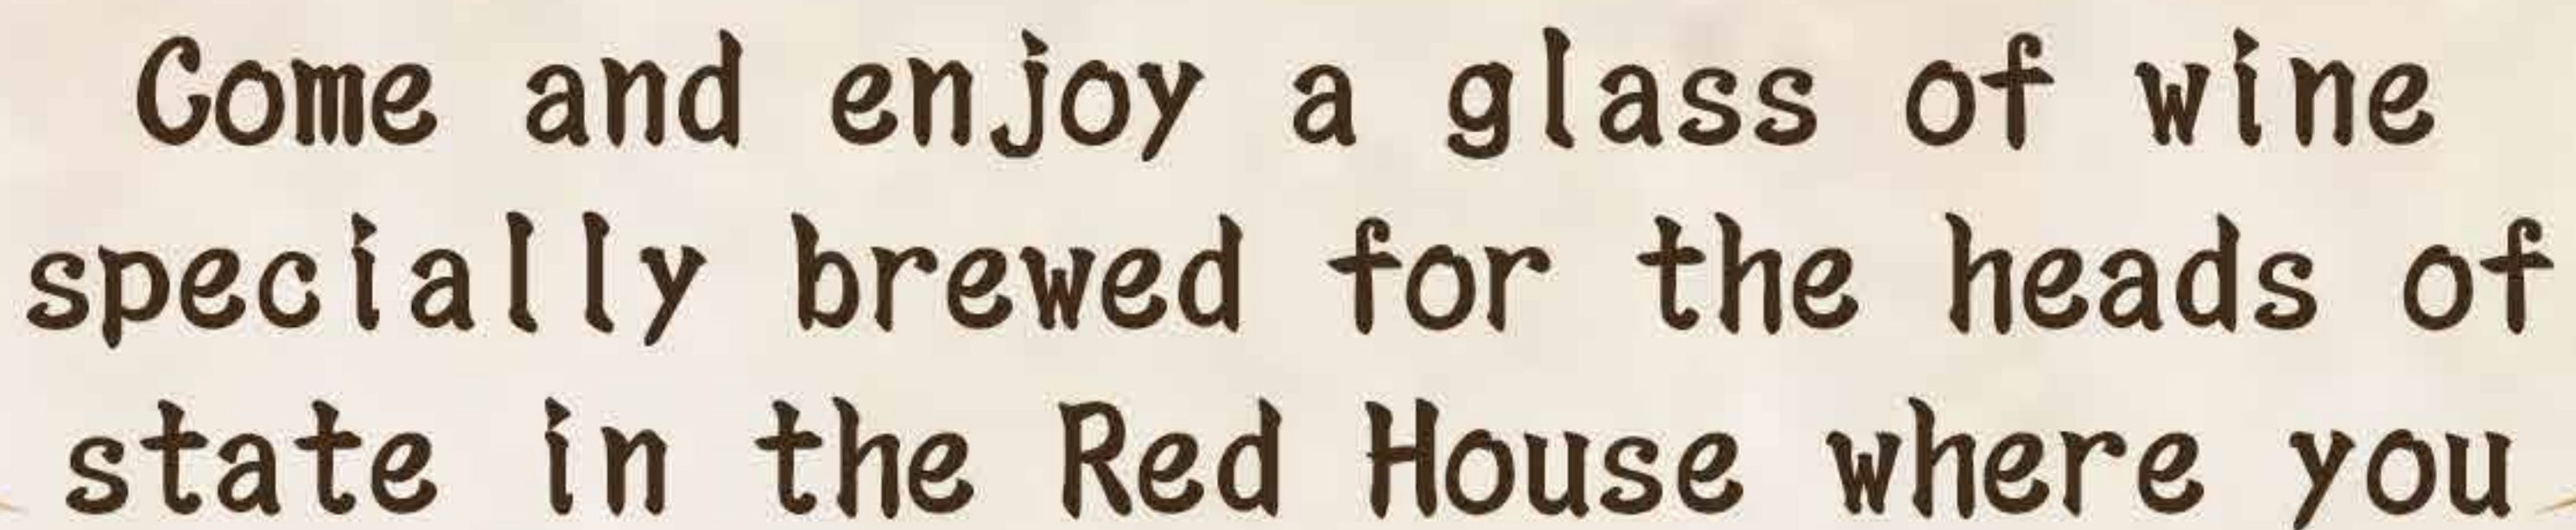 Come and enjoy a glass of wine
specially brewed for the heads of
state in the Red House where you